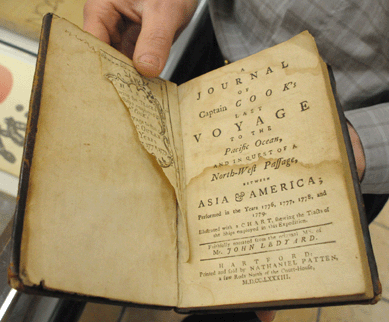 A
JOURNAL
OF
Captain COOK's
LAST
VOYAGE
TO THE
Pacific Ocean,
AND IN QUEST OF A
North-West Passage,
BETWEEN
ASIA & AMERICA;
Performed in the Years 1776, 1777, 1778, and
1779.
Illustrated with a CHART, shewing the Tracts of
the Ships employed in this Expedition.
Faithfully narrated from the original MS. of
Mr. JOHN LEDYARD.
HARTFORD,
Printed and sold by NATHANIEL PATTEN,
a few Rods North of the Court-House,
M.DCC.LXXXIII.